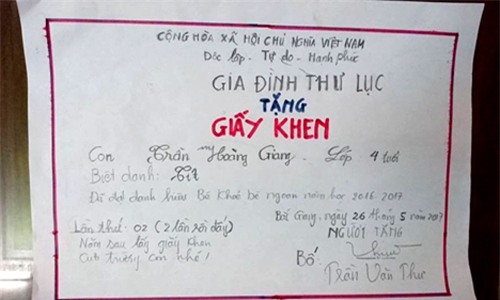 CỘNG HÒA XÃ HỘI CHỦ NGHĨA VIỆT NAM
Độc lập - Tự do - Hạnh phúc
GIA ĐÌNH THƯ LỤC
TẶNG
GIẤY KHEN
Con Trần Hoàng Giang. Lớp 4 tuổi
Biệt danh: Tít
Đã đạt danh hiệu Bé Khoẻ bé ngoan năm học 2016-2017
Bắc Giang, ngày 26 tháng 5 năm 2017
Lần thứ: 02 (2 lần rồi đấy)
NGƯỜI TẶNG
Năm sau lấy giấy khen
Của trường con nhé!
Bố:
Trần Văn Thư